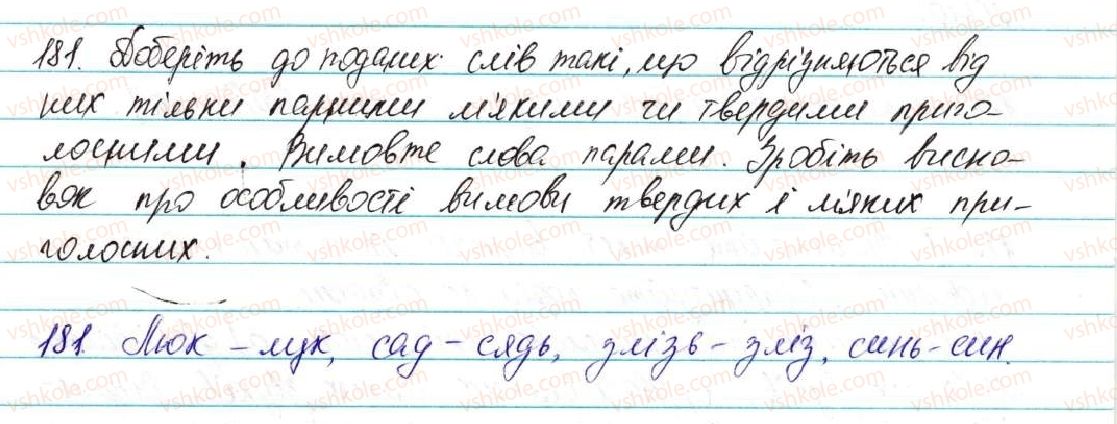 181. Доберіть до поданих слів такі, що відрізняються від
них тільки парними м'якими чи твердими приго-
лосними. Вимовте слова парами. Зробіть висно-
вок про особливості вимови твердих і м'яких при-
голосних.
181. Люк - лук, сад - сядь, злізь - зліз, синь - син.